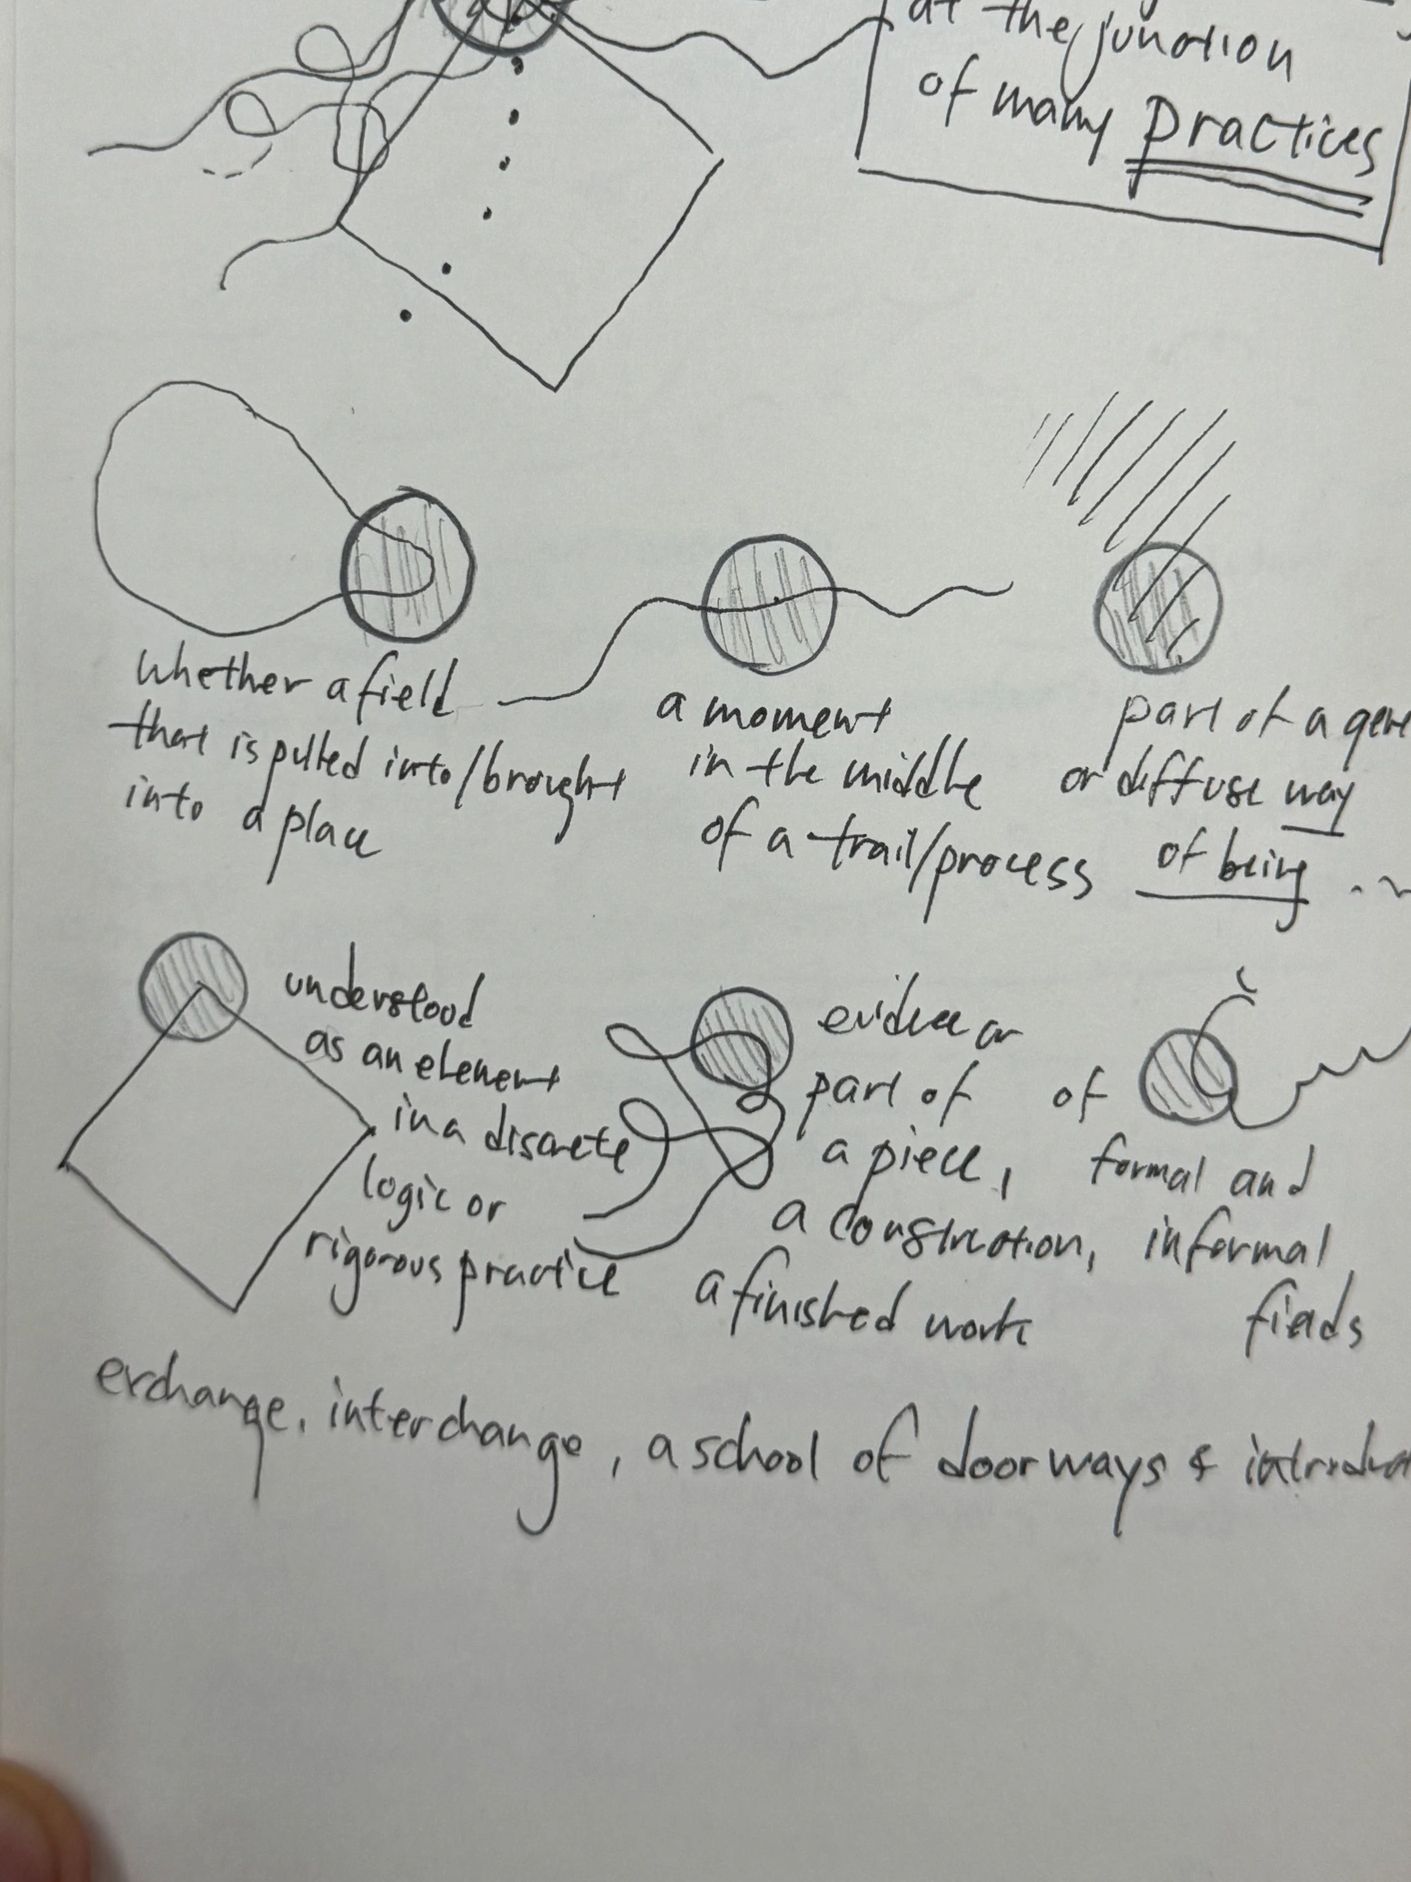 at the junction
of many practices
whether a field
that is pulled into/brought
into a place
a moment
in the middle
of a trail/process
part of a gene
or diffuse way
of being
understood
as an element
in a discrete
logic or
rigorous practice
evidence or
part of
a piece,
a construction,
a finished work
of
formal and
informal
fields
exchange, interchange, a school of doorways & introduc